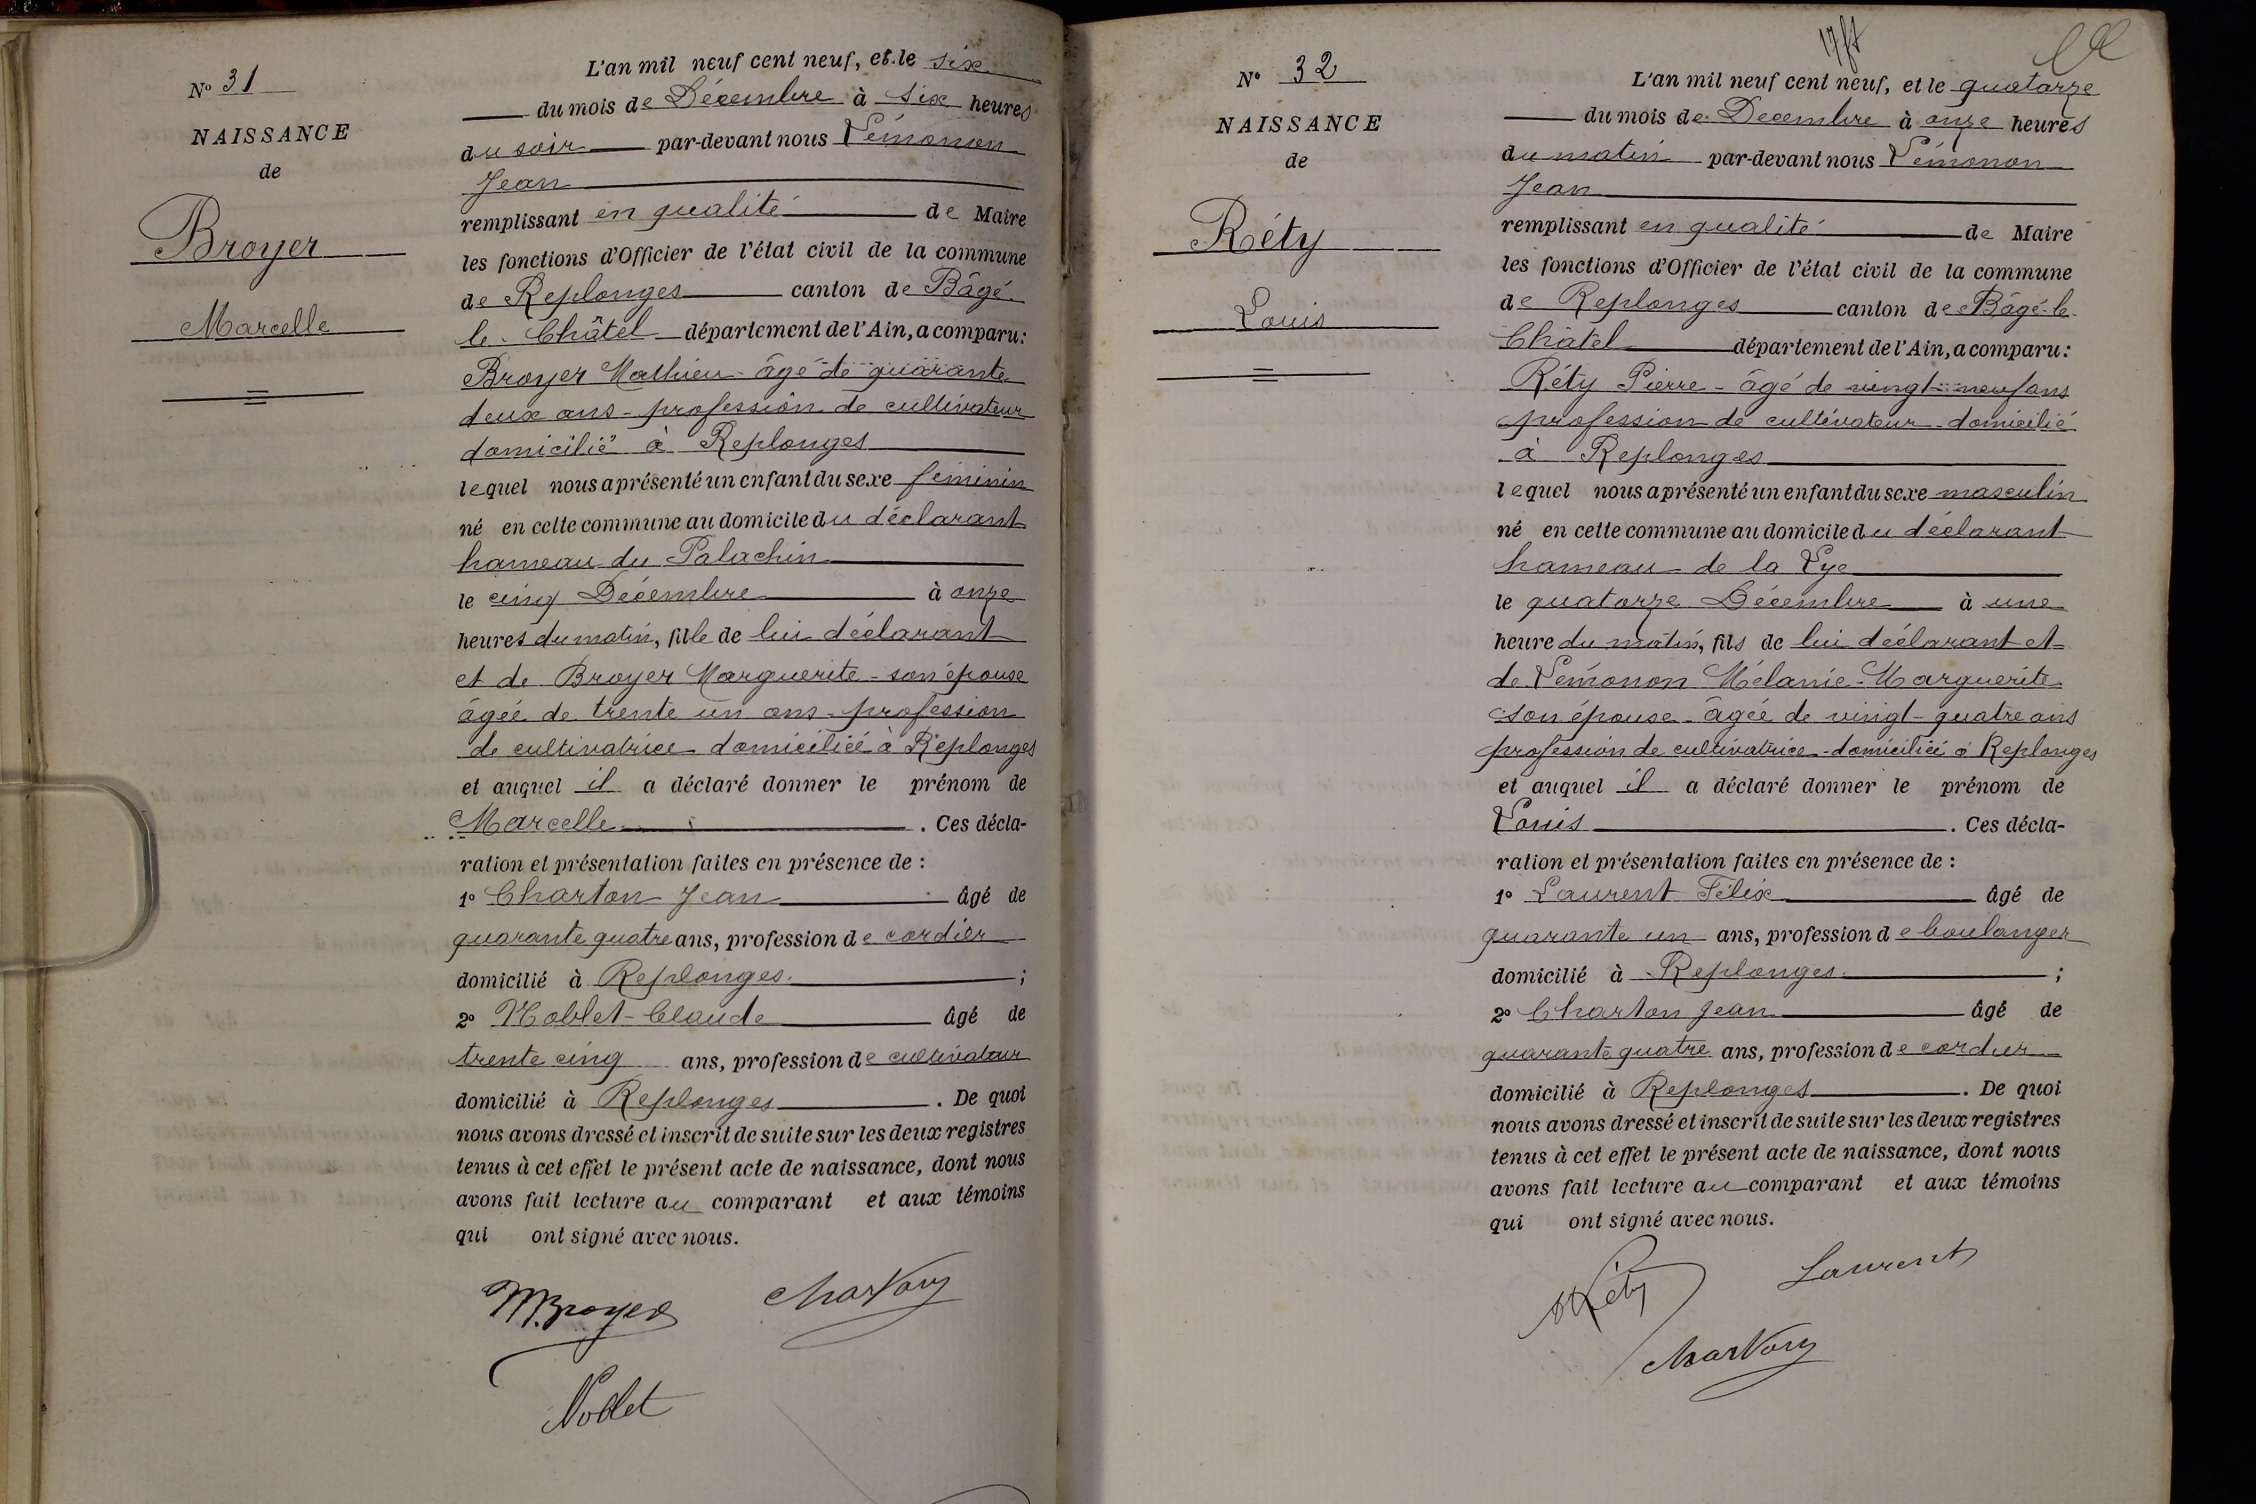 N° 31
NAISSANCE
de
Broyer
Marcelle
L'an mil neuf cent neuf, et le six
du mois de Décembre à six heures
du soir par-devant nous Lémonon
Jean
remplissant en qualité de Maire
les fonctions d'Officier de l'état civil de la commune
de Replonges canton de Bâgé-
le-Châtel département de l'Ain, a comparu:
Broyer Mathieu - âgé de quarante
deux ans - profession de cultivateur
domicilié à Replonges
lequel nous a présenté un enfant du sexe féminin
né en cette commune au domicile du déclarant
hameau du Palachin
le cinq Décembre à onze
heures du matin, fille de lui déclarant
et de Broyer Marguerite - son épouse
âgée de trente un ans - profession
de cultivatrice domiciliée à Replonges
et auquel il a déclaré donner le prénom de
Marcelle. Ces décla-
ration et présentation faites en présence de :
1° Charton Jean âgé de
quarante quatre ans, profession de cordier
domicilié à Replonges ;
2° Noblet Claude âgé de
trente cinq ans, profession de cultivateur
domicilié à Replonges. De quoi
nous avons dressé et inscrit de suite sur les deux registres
tenus à cet effet le présent acte de naissance, dont nous
avons fait lecture au comparant et aux témoins
qui ont signé avec nous.
M. Broyer Charton
Noblet
N° 32
NAISSANCE
de
Réty
Louis
L'an mil neuf cent neuf, et le quatorze
du mois de Décembre à onze heures
du matin par-devant nous Lémonon
Jean
remplissant en qualité de Maire
les fonctions d'Officier de l'état civil de la commune
de Replonges canton de Bâgé-le-
Châtel département de l'Ain, a comparu:
Réty Pierre - âgé de vingt-neuf ans
profession de cultivateur - domicilié
à Replonges
lequel nous a présenté un enfant du sexe masculin
né en cette commune au domicile du déclarant
hameau de la Lye
le quatorze Décembre à une
heure du matin, fils de lui déclarant et
de Lémonon Mélanie-Marguerite
son épouse - âgée de vingt-quatre ans
profession de cultivatrice - domiciliée à Replonges
et auquel il a déclaré donner le prénom de
Louis. Ces décla-
ration et présentation faites en présence de :
1° Laurent Félix âgé de
quarante un ans, profession de boulanger
domicilié à Replonges ;
2° Charton Jean âgé de
quarante quatre ans, profession de cordier
domicilié à Replonges. De quoi
nous avons dressé et inscrit de suite sur les deux registres
tenus à cet effet le présent acte de naissance, dont nous
avons fait lecture au comparant et aux témoins
qui ont signé avec nous.
Réty Laurent
Charton